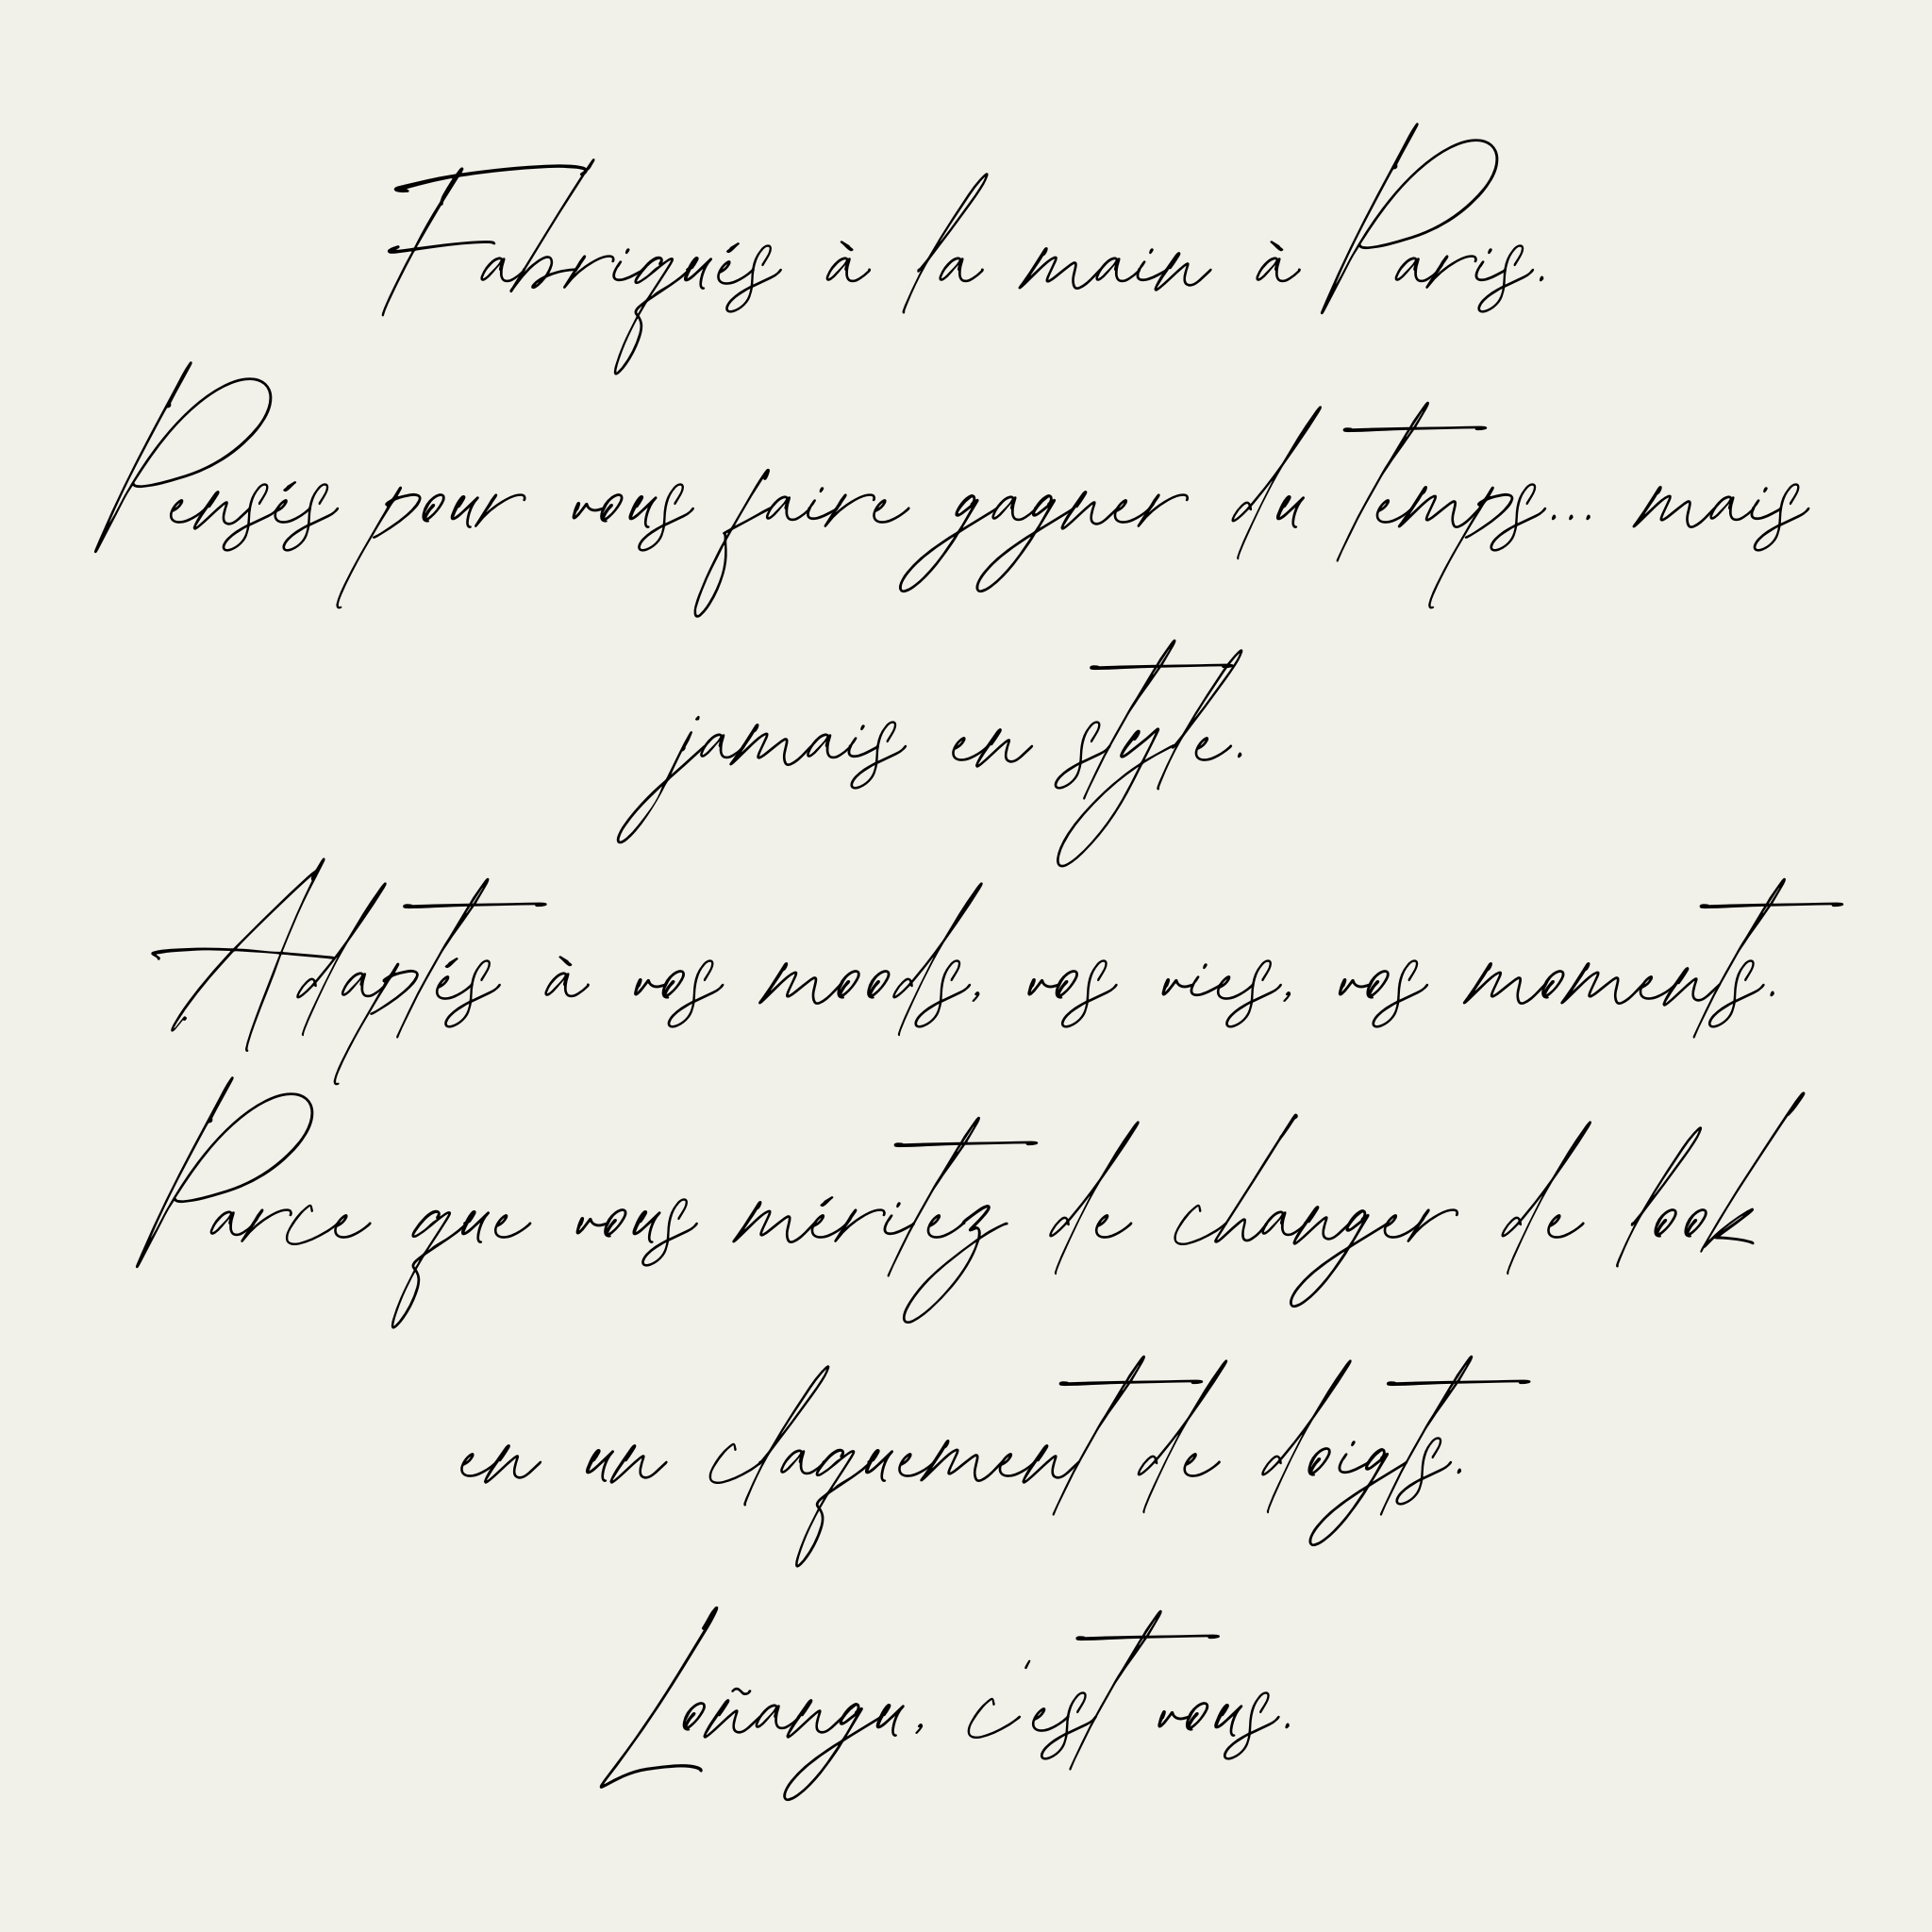 Fabriqués à la main à Paris.
Pensés pour vous faire gagner du temps... mais
jamais en style.
Adaptés à vos moods, vos vies, vos moments.
Parce que vous méritez de changer de look
en un claquement de doigts.
Loñangu, c'est vous.